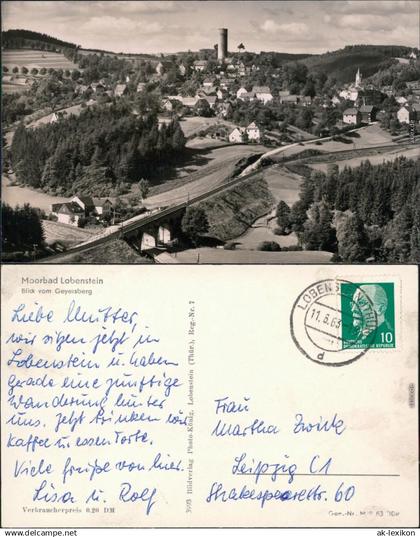 Moorbad Lobenstein
Blick vom Geyersberg
Liebe Mutter,
wir sitzen jetzt in
Lobenstein u. haben
gerade eine zünftige
Wanderung hinter
uns. Jetzt trinken wir
Kaffee u. essen Torte.
Viele Grüße von hier.
Lisa u. Rolf
Verbraucherpreis 0.20 DM
3993 Bildverlag Photo-König, Lobenstein (Thür.) Reg.-Nr. 7
LOBENSTEIN
11.6.63
d
DEUTSCHE
DEMOKRATISCHE REPUBLIK 10
Frau
Martha Zwintz
Leipzig C1
Shakespearestr. 60
www.ak-ansichtskarten.de